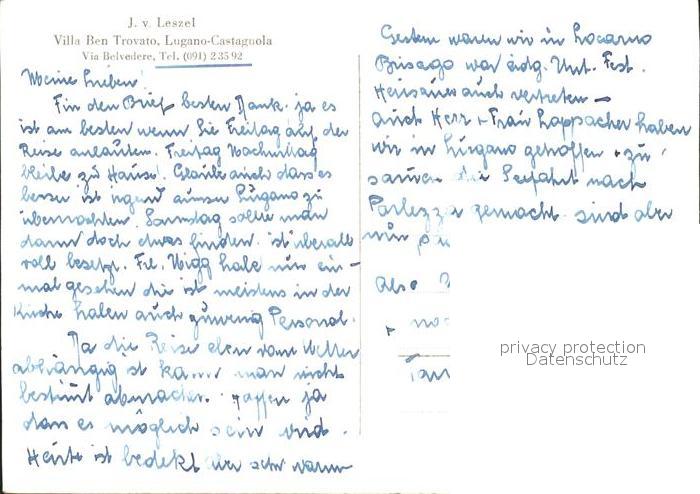 J. v. Leszel
Villa Ben Trovato, Lugano-Castagnola
Via Belvedere, Tel. (091) 2 35 92
Meine Lieben!
Für den Brief besten Dank. ja es
ist am besten wenn Sie Freitag auf der
Reise anläuten. Freitag Nachmittag
bleibe zu Hause! Glaube auch dass es
besser ist irgend ausser Lugano zu
übernachten. Samstag sollte man
dann doch etwas finden. ist überall
voll besetzt. Frl. Nigg habe nur ein-
mal gesehen die ist meistens in der
Küche haben auch zuwenig Personal.
Da die Reise eben vom Wetter
abhängig ist kann man nicht
bestimt abmachen. hoffen ja
dass es möglich sein wird.
Heute ist bedekt aber sehr warm
Gestern waren wir in Locarno
Brisago war eidg. Unt. Fest.
auch vertreten –
Auch Herr + Frau Loppacher haben
wir in Lugano getroffen + zu
samen die Seefahrt nach
Porlezza gemacht. sind aber
nur
Also
+ noc
privacy protection
Datenschutz